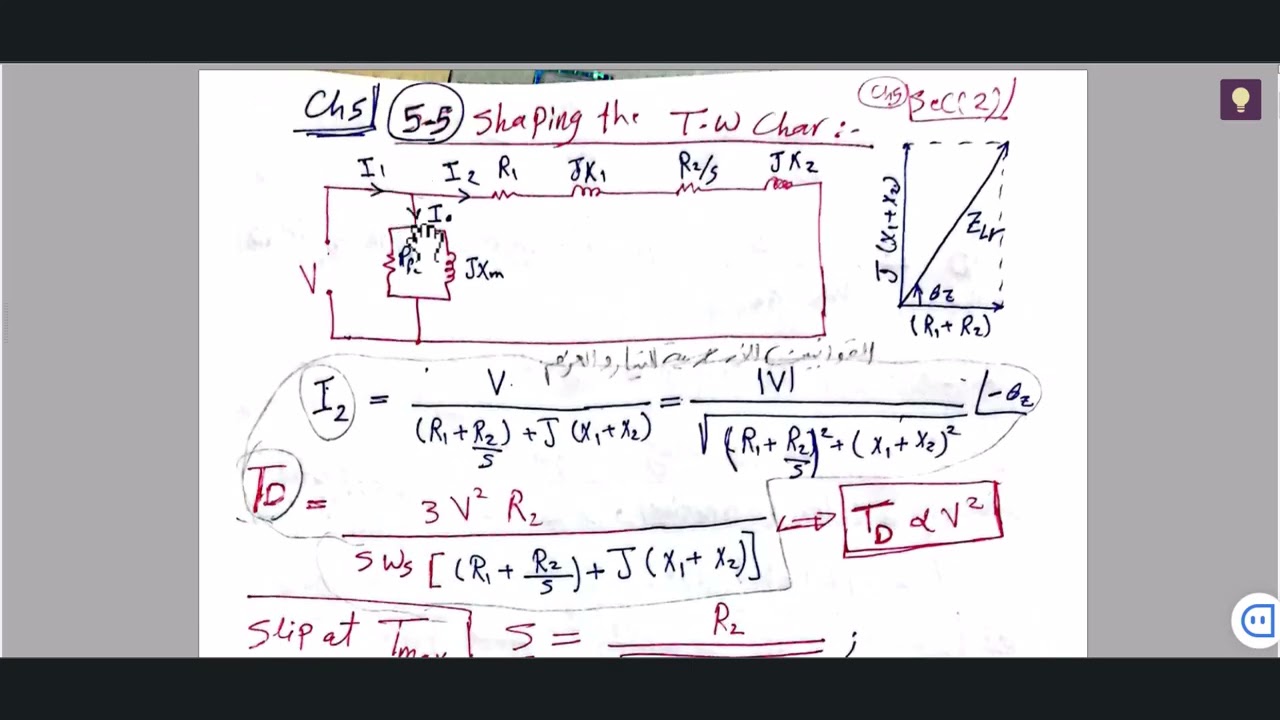 Ch5 5-5 Shaping the T-W Char:-
Ch5 Sec(2)
I1 I2 R1 JX1 R2/s JX2
I0
V Rc JXm
J(X1+X2) ZLr θz
(R1+R2)
I2 = V / ((R1 + R2/S) + J(X1+X2)) = |V| / √((R1 + R2/S)² + (X1+X2)²) ∠-θz
TD = 3 V² R2 / (S Ws [(R1 + R2/S) + J(X1+X2)]) ⟹ TD ∝ V²
Slip at Tmax S = R2 ;